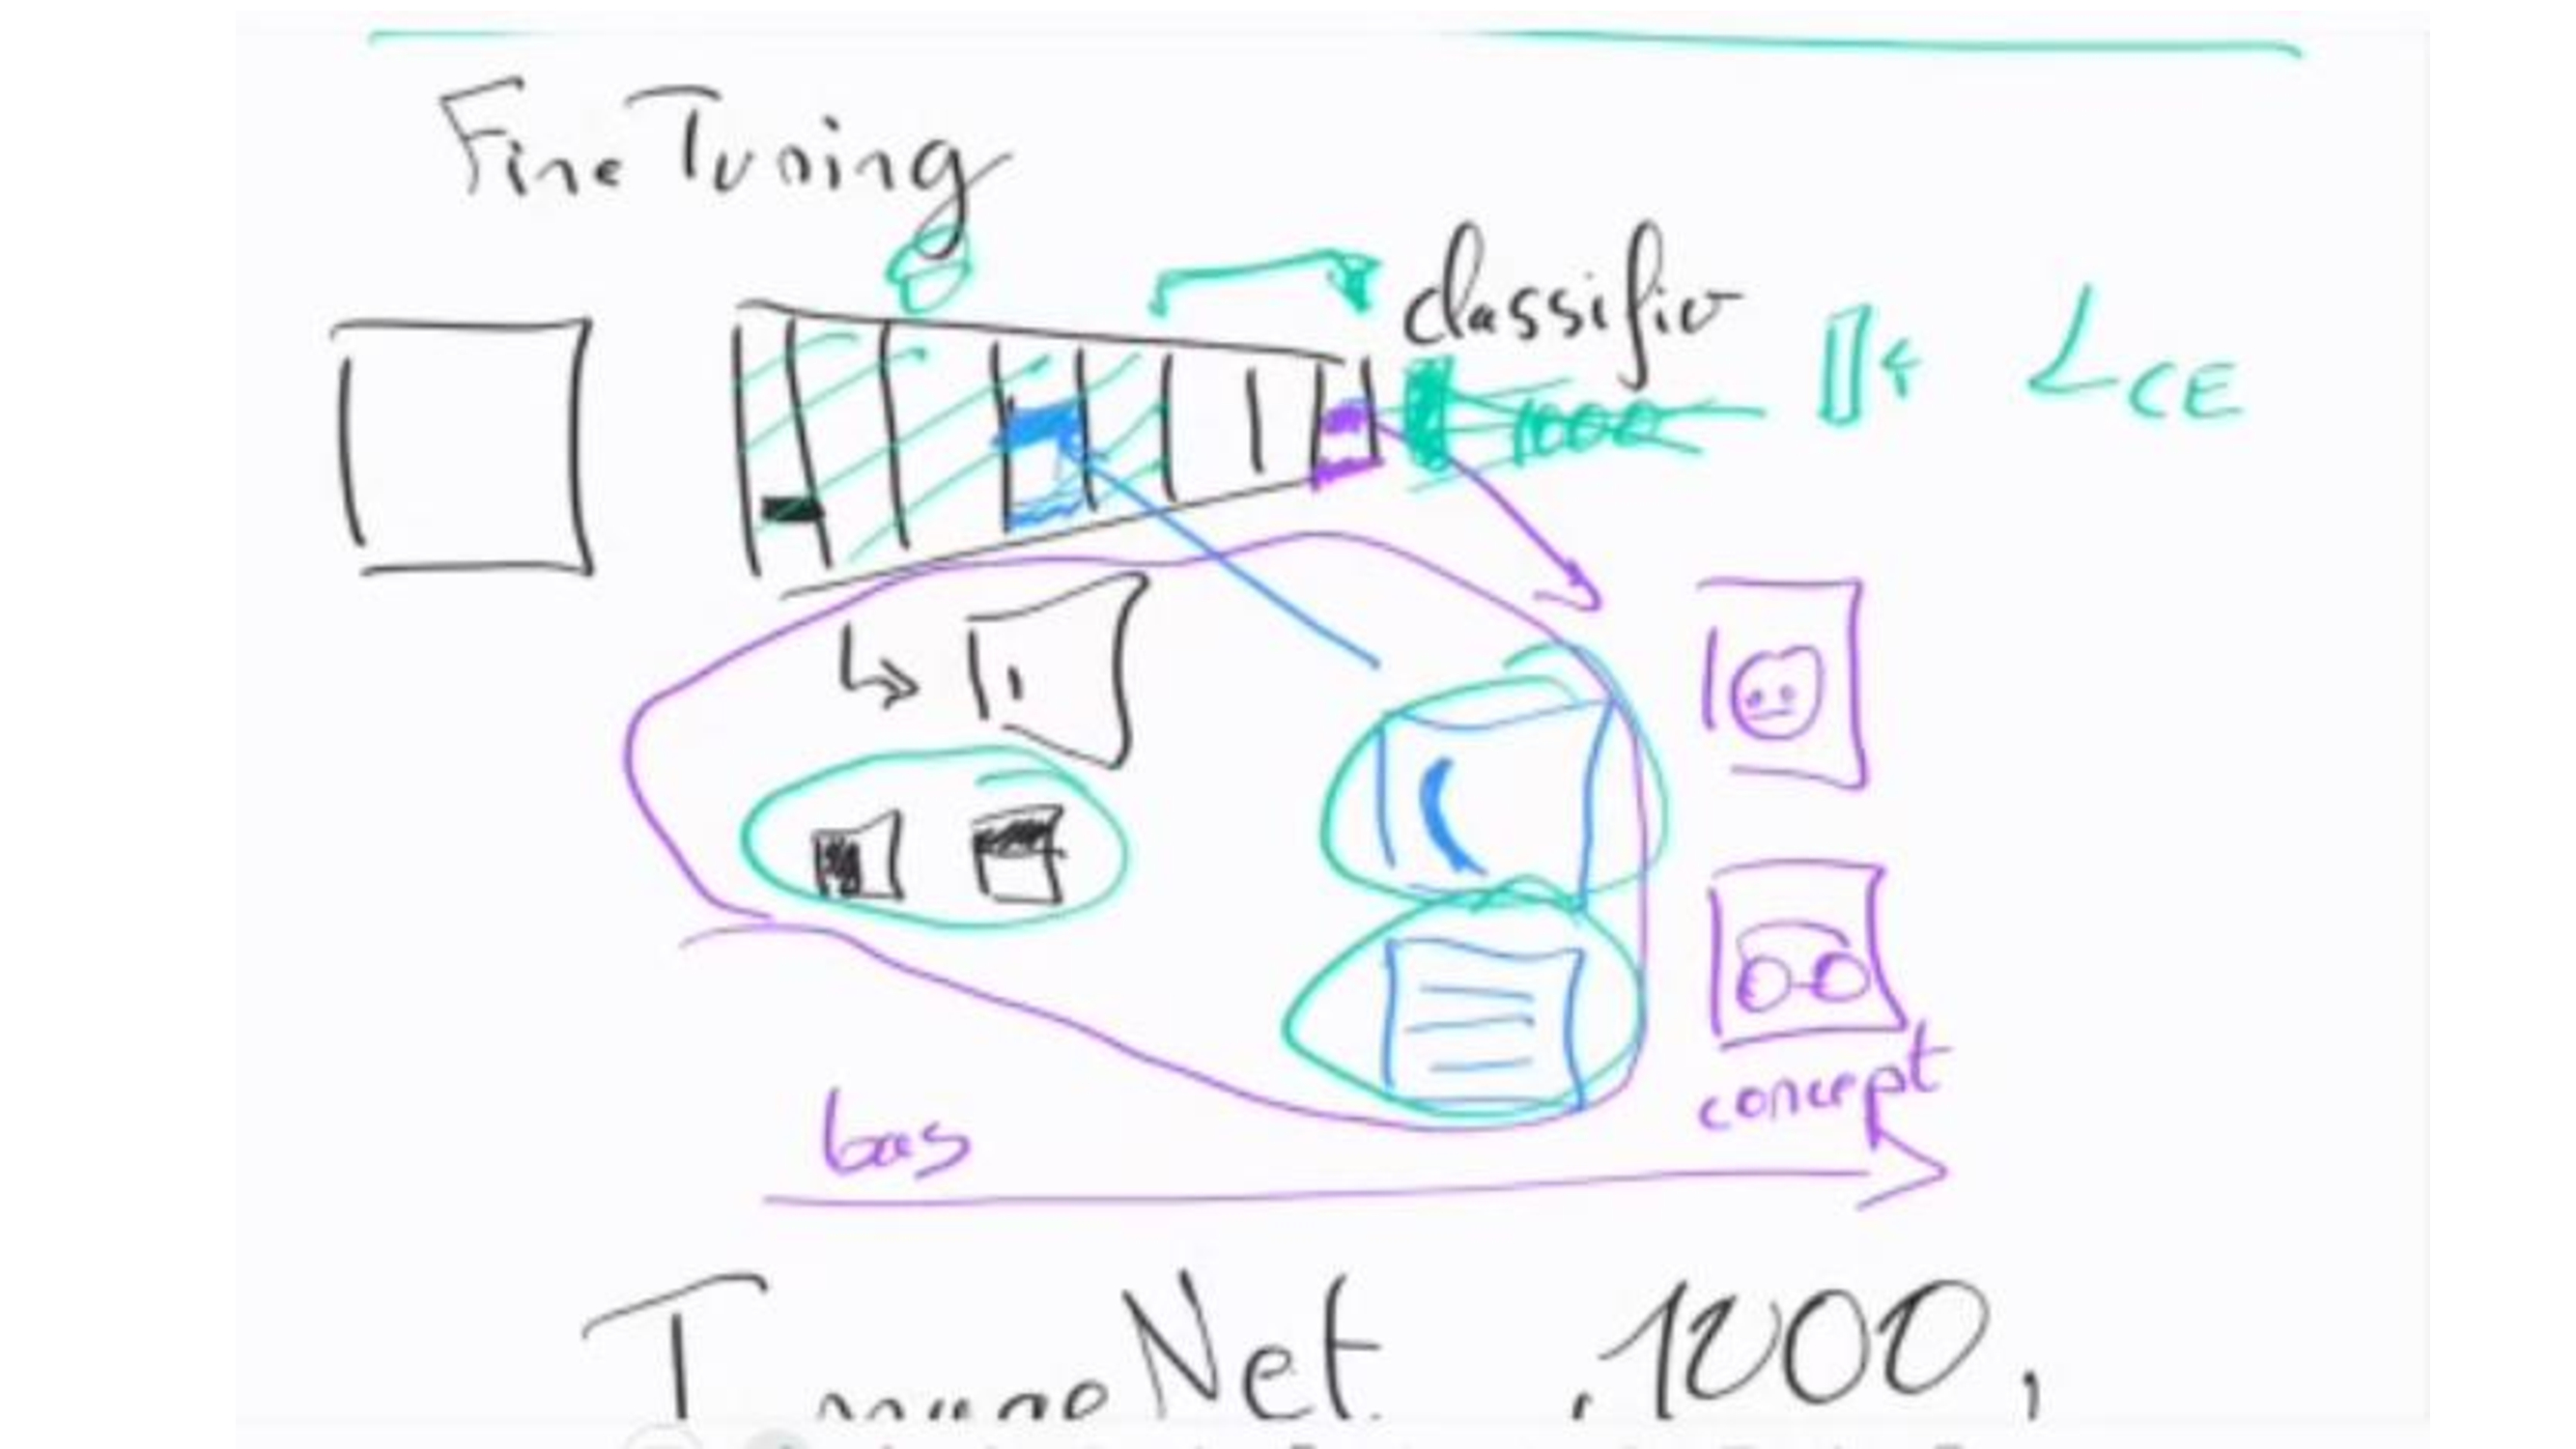 Fine Tuning
classific
1000
L CE
concept
bas
ImageNet 1000,